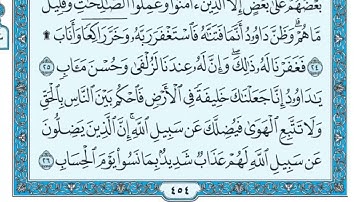 بَعْضُهُمْ عَلَىٰ بَعْضٍ إِلَّا الَّذِينَ ءَامَنُوا وَعَمِلُوا الصَّٰلِحَٰتِ وَقَلِيلٌ
مَّا هُمْ ۗ وَظَنَّ دَاوُۥدُ أَنَّمَا فَتَنَّٰهُ فَاسْتَغْفَرَ رَبَّهُۥ وَخَرَّ رَاكِعًا وَأَنَابَ ۩
٢٤ فَغَفَرْنَا لَهُۥ ذَٰلِكَ ۖ وَإِنَّ لَهُۥ عِندَنَا لَزُلْفَىٰ وَحُسْنَ مَـَٔابٍ ٢٥
يَٰدَاوُۥدُ إِنَّا جَعَلْنَٰكَ خَلِيفَةً فِي الْأَرْضِ فَاحْكُم بَيْنَ النَّاسِ بِالْحَقِّ
وَلَا تَتَّبِعِ الْهَوَىٰ فَيُضِلَّكَ عَن سَبِيلِ اللَّهِ ۚ إِنَّ الَّذِينَ يَضِلُّونَ
عَن سَبِيلِ اللَّهِ لَهُمْ عَذَابٌ شَدِيدٌۢ بِمَا نَسُوا يَوْمَ الْحِسَابِ ٢٦
٤٥٤